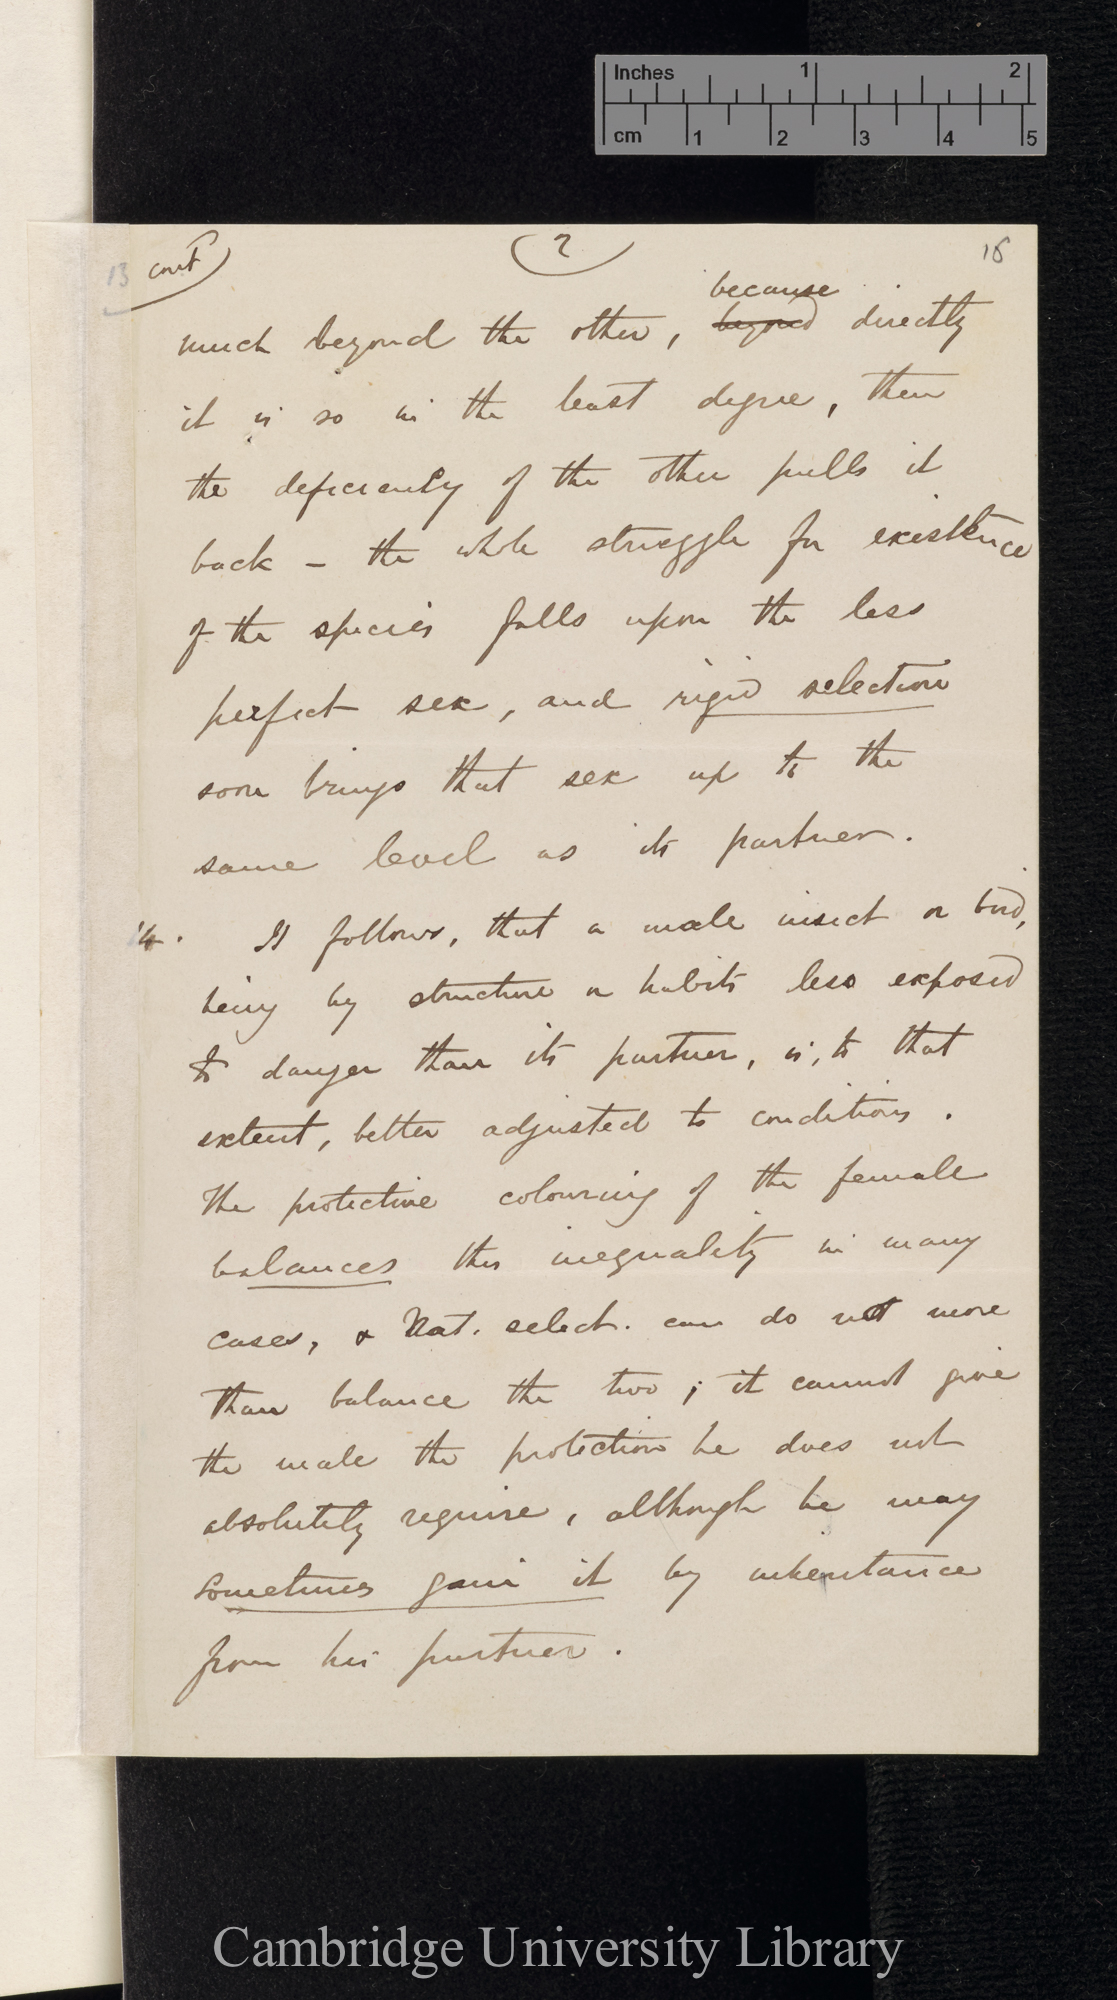 Inches 1 2
cm 1 2 3 4 5
13 cont 2 18
because
much beyond the other, beyond directly
it is so in the least degree, then
the deficiency of the other pulls it
back – the whole struggle for existence
of the species falls upon the less
perfect sex, and rigid selection
soon brings that sex up to the
same level as its partner.
14. It follows, that a male insect or bird,
being by structure or habits less exposed
to danger than its partner, is, to that
extent, better adjusted to conditions.
The protective colouring of the female
balances this inequality in many
cases, & Nat. select. can do not more
than balance the two; it cannot give
the male the protection he does not
absolutely require, although he may
sometimes gain it by inheritance
from his partner.
Cambridge University Library